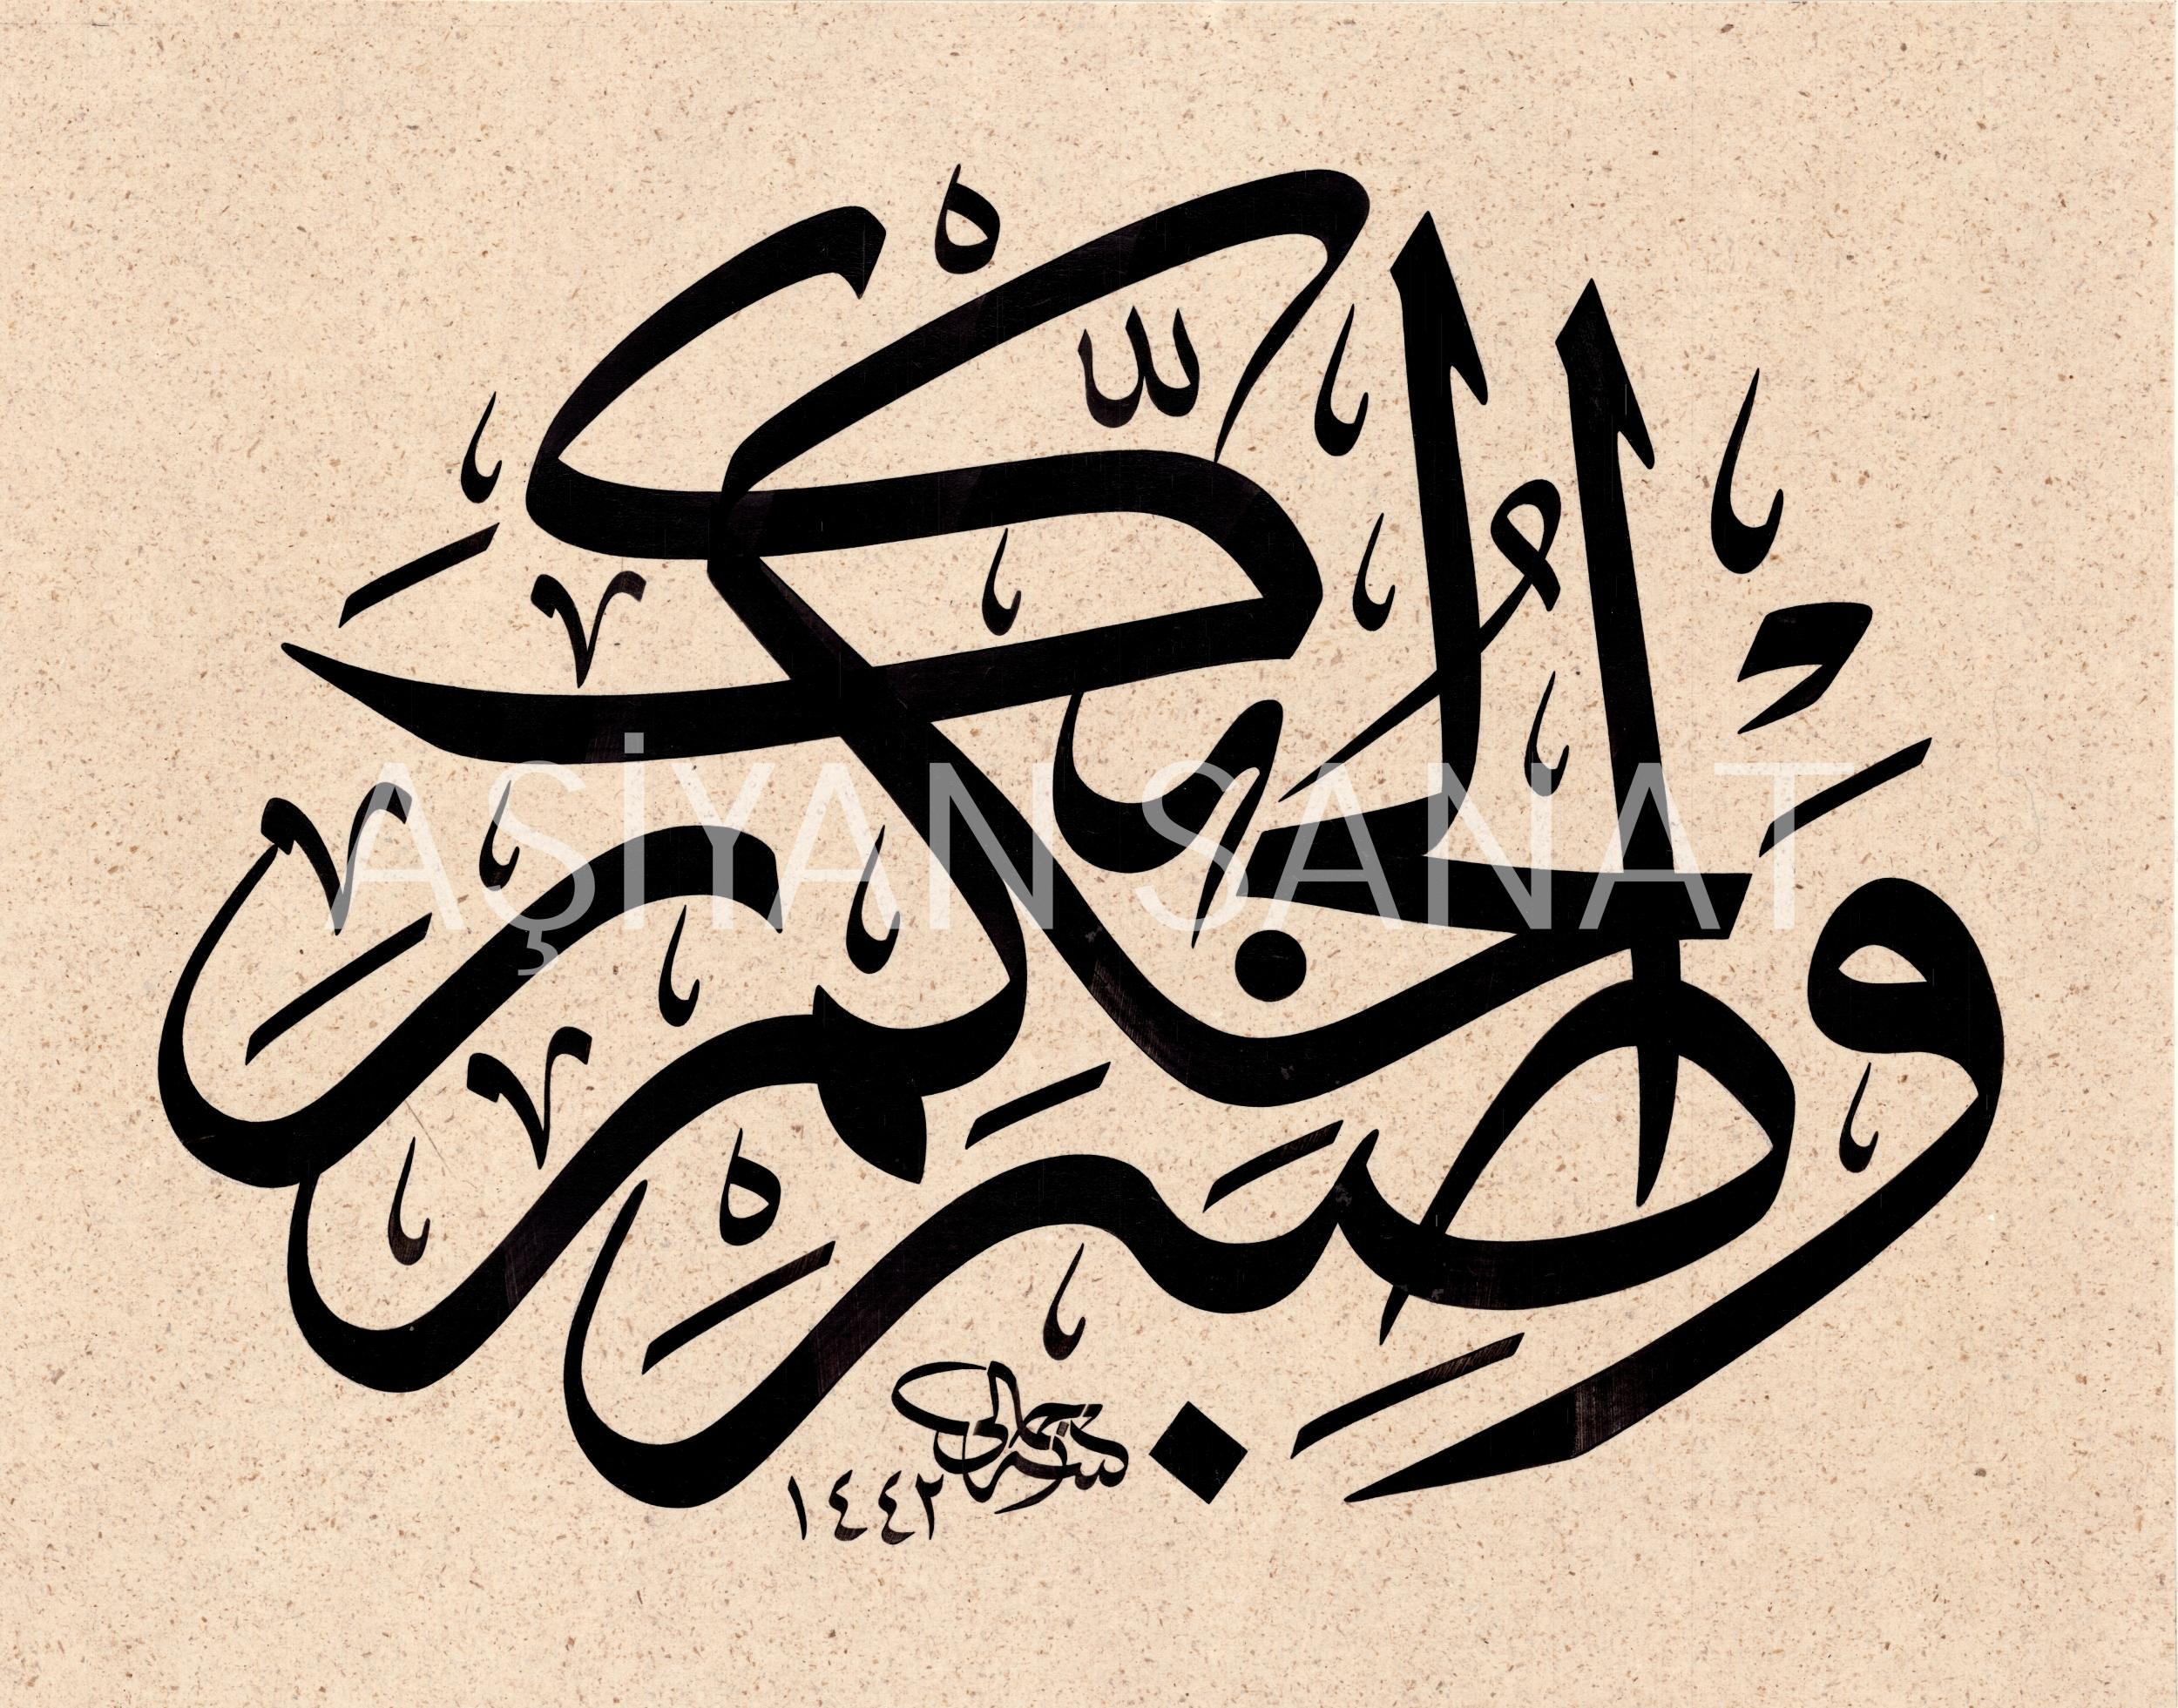 وَاصْبِرْ لِحُكْمِ رَبِّكَ
AŞİYAN SANAT
١٤٤٢